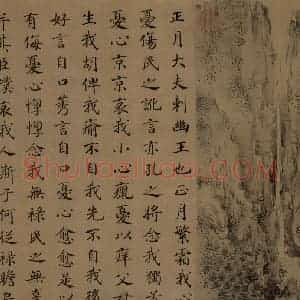 正月大夫刺幽王也正月繁霜我心
憂傷民之訛言亦孔之將念我獨
憂心京京哀我小心癙憂以痒父
生我胡俾我瘉不自我先不自我
好言自口莠言自口憂心愈愈是以
有侮憂心惸惸念我無祿民之無
并其臣僕哀我人斯于何從祿瞻